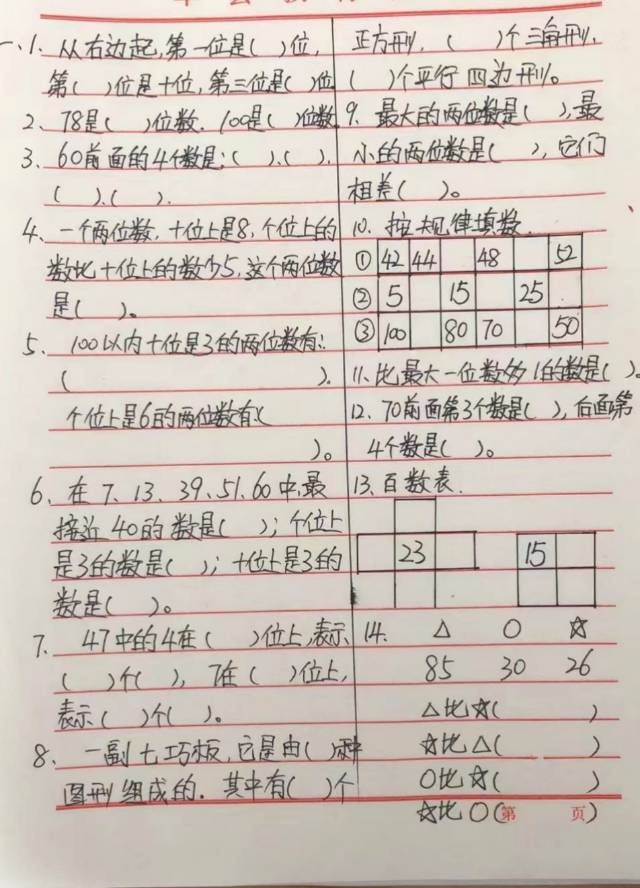 一、1、从右边起,第一位是( )位,
第( )位是十位,第三位是( )位
2、78是( )位数.100是( )位数
3、60前面的4个数是:( )、( )、
( )、( ).
4、一个两位数,十位上是8,个位上的
数比十位上的数少5,这个两位数
是( )。
5、100以内十位是3的两位数有:
( ).
个位上是6的两位数有:(
)。
6、在7、13、39、51、60中,最
接近40的数是( );个位上
是3的数是( );十位上是3的
数是( )。
7、47中的4在( )位上,表示
( )个( ),7在( )位上,
表示( )个( )。
8、一副七巧板,它是由( )种
图形组成的.其中有( )个
正方形,( )个三角形,
( )个平行四边形。
9、最大的两位数是( ),最
小的两位数是( ),它们
相差( )。
10、按规律填数.
① 42 44 48 52
② 5 15 25
③ 100 80 70 50
11、比最大一位数多1的数是( )。
12、70前面第3个数是( ),后面第
4个数是( )。
13、百数表.
23 15
14、 △ ○ ☆
85 30 26
△比☆( )
☆比△( )
○比☆( )
☆比○( )
第 页